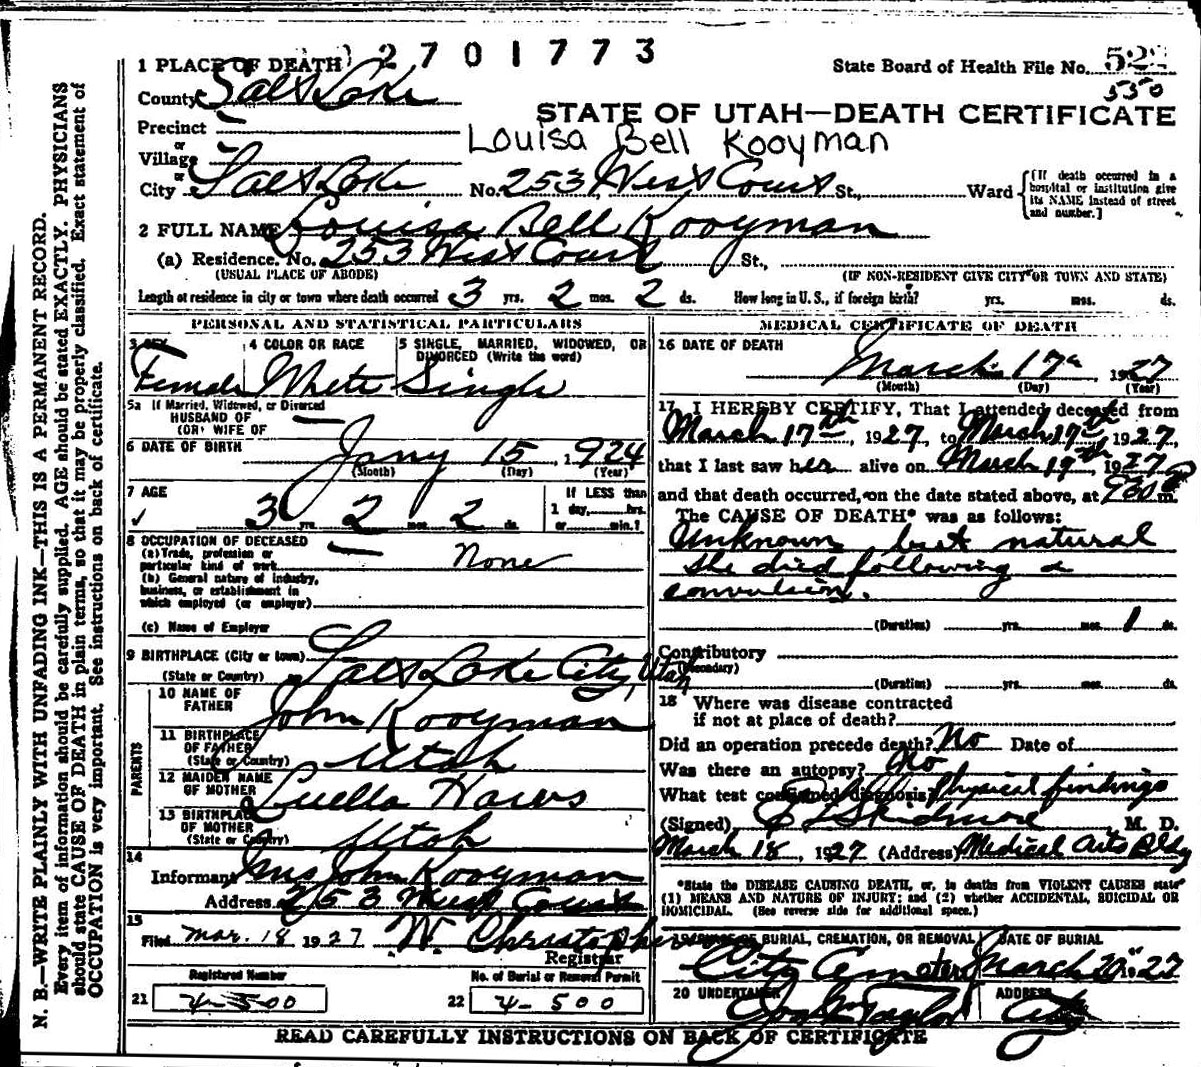 2701773
1 PLACE OF DEATH
State Board of Health File No. 522
550
County Salt Lake
STATE OF UTAH—DEATH CERTIFICATE
Precinct
Louisa Bell Kooyman
or
Village
or
City Salt Lake No. 253 West Court St., Ward {[If death occurred in a hospital or institution give its NAME instead of street and number.]
2 FULL NAME Louisa Bell Kooyman
(a) Residence. No. 253 West Court St.,
(USUAL PLACE OF ABODE) (IF NON-RESIDENT GIVE CITY OR TOWN AND STATE)
Length of residence in city or town where death occurred 3 yrs. 2 mos. 2 ds. How long in U. S., if foreign birth? yrs. mos. ds.
PERSONAL AND STATISTICAL PARTICULARS
3 SEX 4 COLOR OR RACE 5 SINGLE, MARRIED, WIDOWED, OR DIVORCED (Write the word)
Female White Single
5a If Married, Widowed, or Divorced
HUSBAND OF
(OR) WIFE OF
6 DATE OF BIRTH Jany 15 1924
(Month) (Day) (Year)
7 AGE 3 yrs. 2 mos. 2 ds.
If LESS than
1 day, hrs.
or min.?
8 OCCUPATION OF DECEASED
(a) Trade, profession or
particular kind of work None
(b) General nature of industry,
business, or establishment in
which employed (or employer)
(c) Name of Employer
9 BIRTHPLACE (City or town) Salt Lake City, Utah
(State or Country)
PARENTS
10 NAME OF
FATHER John Kooyman
11 BIRTHPLACE
OF FATHER
(State or Country) Utah
12 MAIDEN NAME
OF MOTHER Luella Haws
13 BIRTHPLACE
OF MOTHER
(State or Country) Utah
14
Informant Mrs John Kooyman
Address 253 West Court
15
Filed Mar. 18 1927 W. Christopherson
Registrar
Registered Number No. of Burial or Removal Permit
21 4-500 22 4-500
MEDICAL CERTIFICATE OF DEATH
16 DATE OF DEATH
March 17 1927
(Month) (Day) (Year)
17 I HEREBY CERTIFY, That I attended deceased from
March 17th, 1927, to March 17th, 1927,
that I last saw her alive on March 17th, 1927
and that death occurred, on the date stated above, at m.
The CAUSE OF DEATH* was as follows:
Unknown but natural
She died following a
convulsion.
(Duration) yrs. mos. 1 ds.
Contributory
(Secondary)
(Duration) yrs. mos. ds.
18 Where was disease contracted
if not at place of death?
Did an operation precede death? No Date of
Was there an autopsy? No
What test confirmed diagnosis? Physical findings
(Signed) Skidmore M. D.
March 18, 1927 (Address) Medical Arts Bldg
*State the DISEASE CAUSING DEATH, or, in deaths from VIOLENT CAUSES state
(1) MEANS AND NATURE OF INJURY; and (2) whether ACCIDENTAL, SUICIDAL OR
HOMICIDAL. (See reverse side for additional space.)
19 PLACE OF BURIAL, CREMATION, OR REMOVAL DATE OF BURIAL
City Cemetery March 20 1927
20 UNDERTAKER ADDRESS
Taylor City
READ CAREFULLY INSTRUCTIONS ON BACK OF CERTIFICATE
N. B.—WRITE PLAINLY WITH UNFADING INK—THIS IS A PERMANENT RECORD.
Every item of information should be carefully supplied. AGE should be stated EXACTLY. PHYSICIANS
should state CAUSE OF DEATH in plain terms, so that it may be properly classified. Exact statement of
OCCUPATION is very important. See instructions on back of certificate.